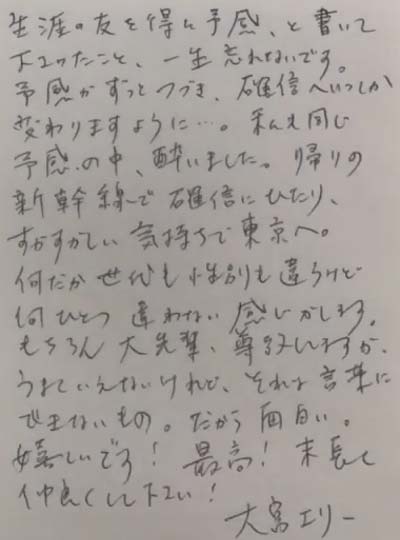 生涯の友を得た予感、と書いて
下さったこと、一生忘れないです。
予感がずっとつづき、確信へいつしか
変わりますように…。私も同じ
予感の中、酔いました。帰りの
新幹線で確信にひたり、
すがすがしい気持ちで東京へ。
何だか世代も性別も違うけど
何ひとつ違わない感じがします。
もちろん大先輩、尊敬しますが、
うまくいえないけれど、それは言葉に
できないもの。だから面白い。
嬉しいです!最高!末長く
仲良くして下さい!
大宮エリー